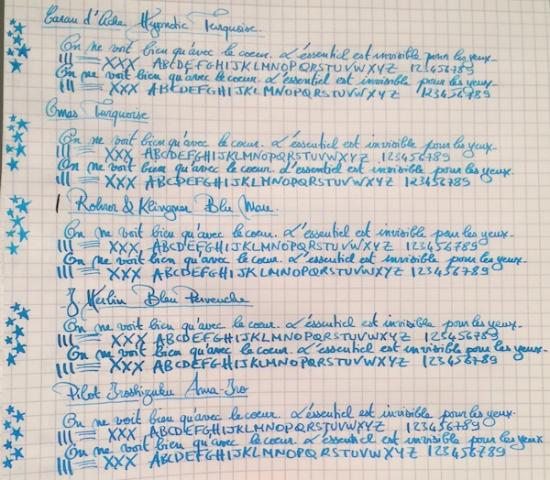 Caran d'Ache Hypnotic Turquoise.
On ne voit bien qu'avec le coeur. L'essentiel est invisible pour les yeux.
III XXX ABCDEFGHIJKLMNOPQRSTUVWXYZ 123456789
On ne voit bien qu'avec le coeur. L'essentiel est invisible pour les yeux.
III XXX ABCDEFGHIJKLMNOPQRSTUVWXYZ 123456789
Omas Turquoise
On ne voit bien qu'avec le coeur. L'essentiel est invisible pour les yeux.
III XXX ABCDEFGHIJKLMNOPQRSTUVWXYZ 123456789
On ne voit bien qu'avec le coeur. L'essentiel est invisible pour les yeux.
III XXX ABCDEFGHIJKLMNOPQRSTUVWXYZ 123456789
Rohrer & Klingner Blu Mare
On ne voit bien qu'avec le coeur. L'essentiel est invisible pour les yeux.
III XXX ABCDEFGHIJKLMNOPQRSTUVWXYZ 123456789
On ne voit bien qu'avec le coeur. L'essentiel est invisible pour les yeux.
III XXX ABCDEFGHIJKLMNOPQRSTUVWXYZ 123456789
J Herbin Bleu Pervenche
On ne voit bien qu'avec le coeur. L'essentiel est invisible pour les yeux.
III XXX ABCDEFGHIJKLMNOPQRSTUVWXYZ 123456789
On ne voit bien qu'avec le coeur. L'essentiel est invisible pour les yeux.
III XXX ABCDEFGHIJKLMNOPQRSTUVWXYZ 123456789
Pilot Iroshizuku Ama-Iro
On ne voit bien qu'avec le coeur. L'essentiel est invisible pour les yeux.
III XXX ABCDEFGHIJKLMNOPQRSTUVWXYZ 123456789
On ne voit bien qu'avec le coeur. L'essentiel est invisible pour les yeux
III XXX ABCDEFGHIJKLMNOPQRSTUVWXYZ 123456789